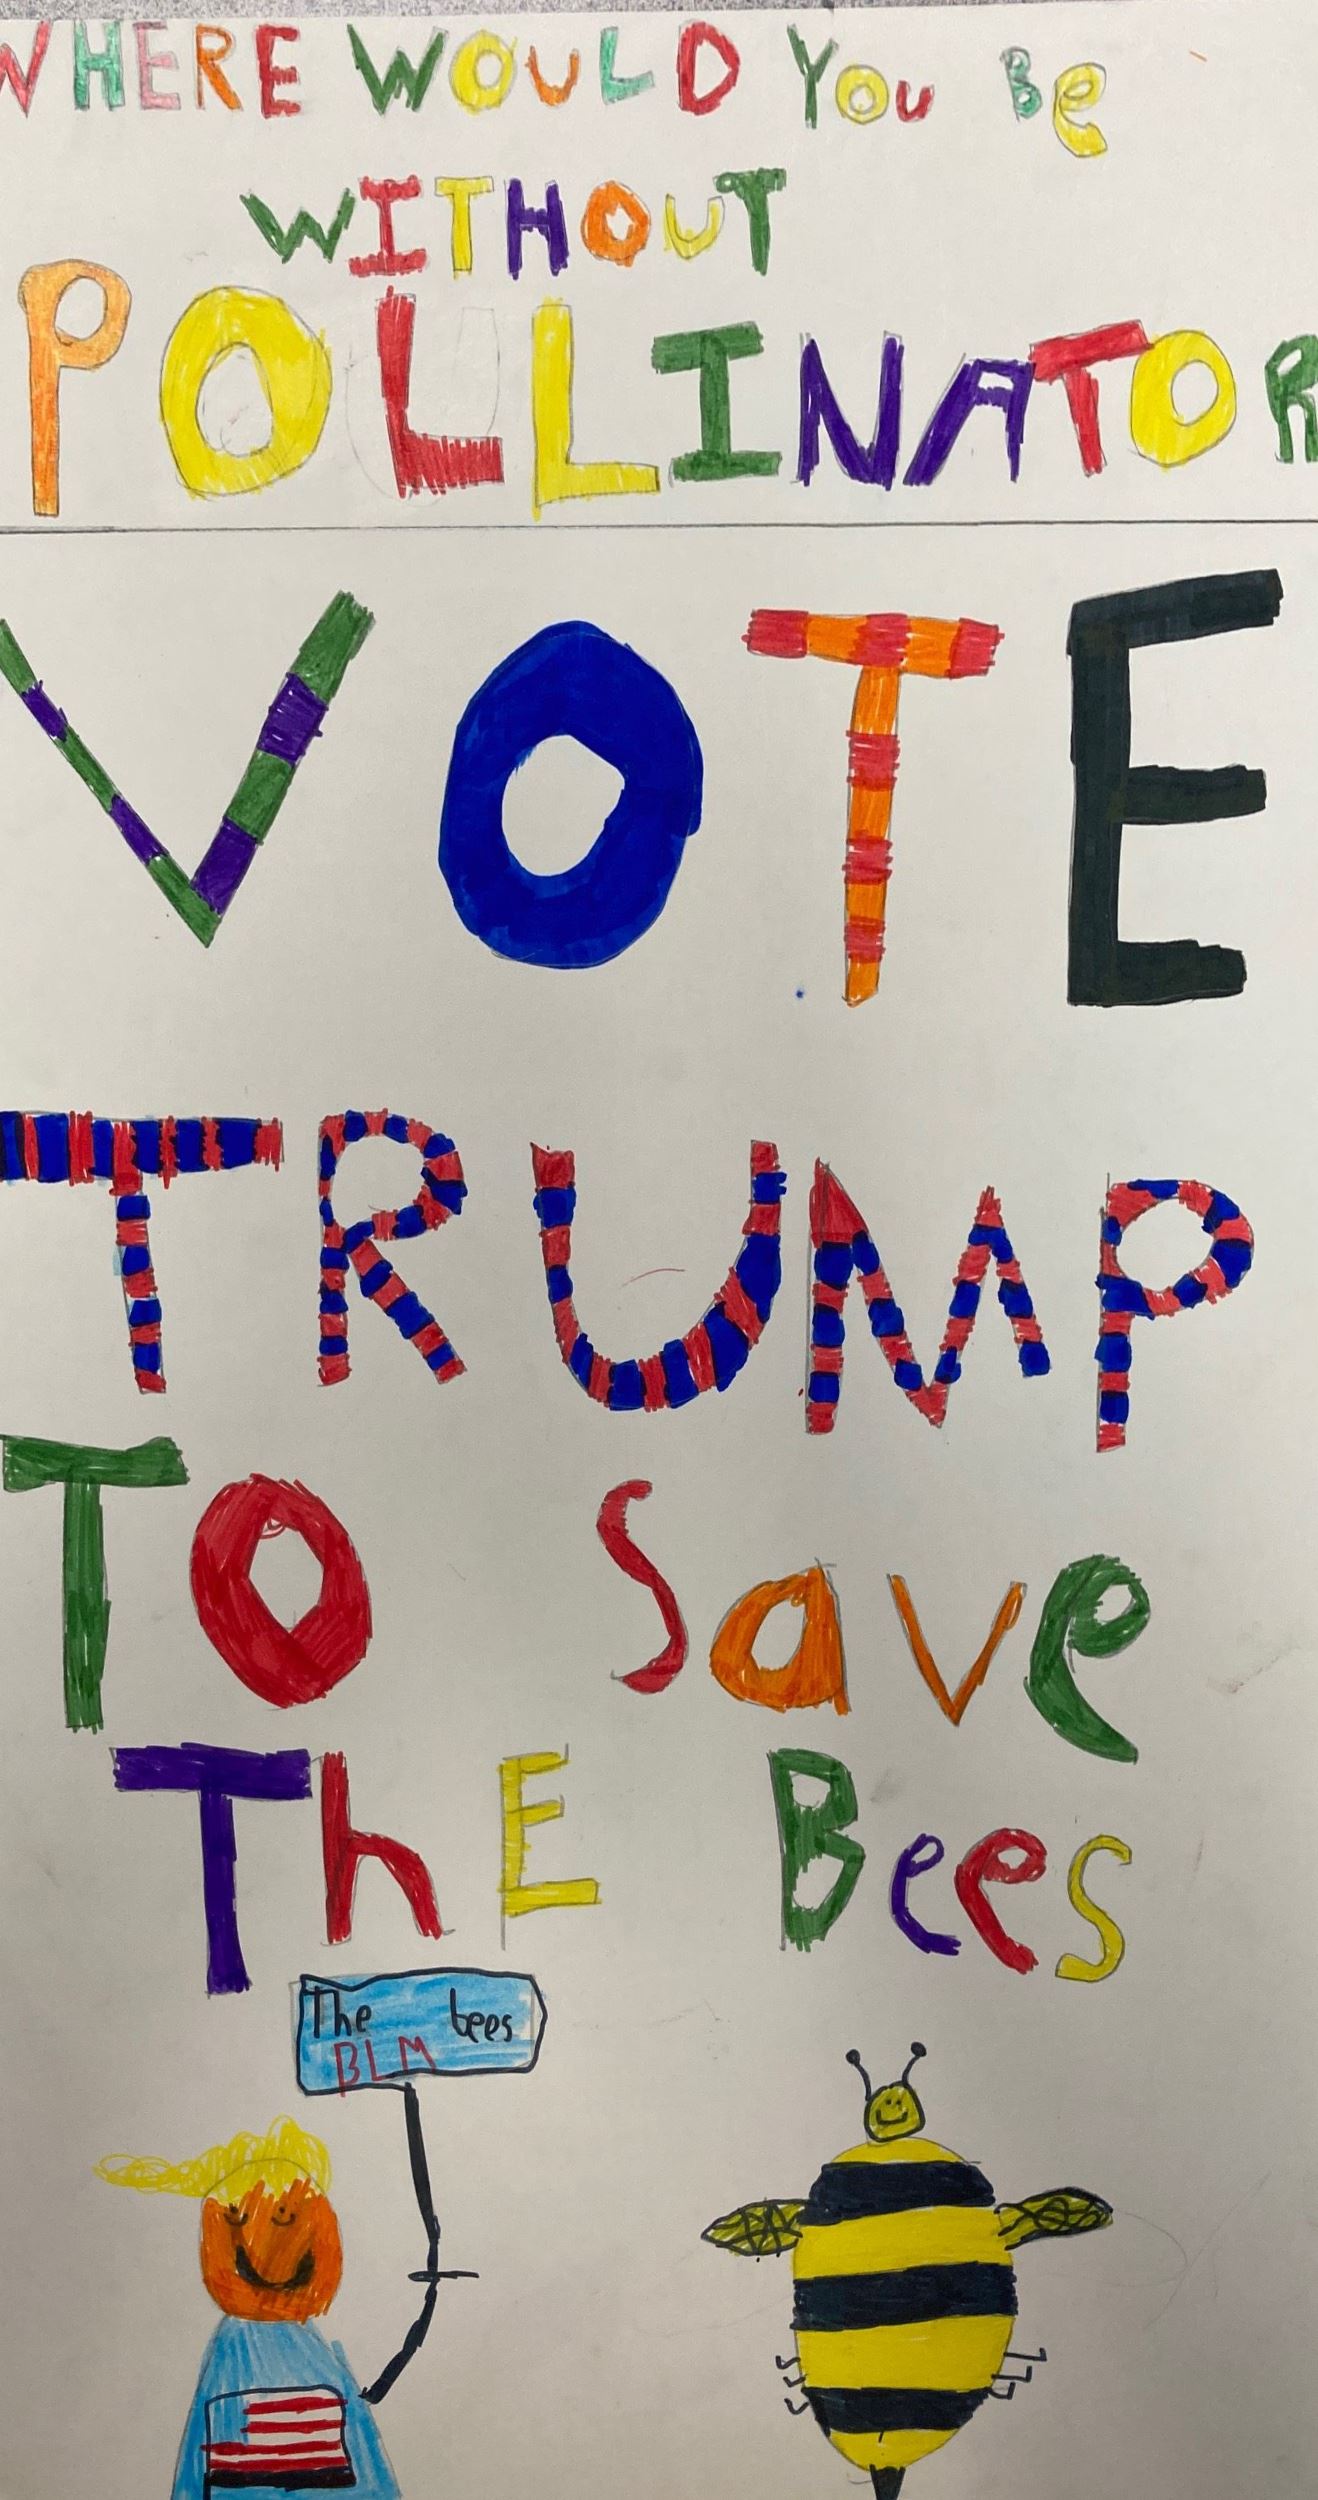 WHERE WOULD You Be
WITHOUT
POLLINATOR
VOTE
TRUMP
TO Save
ThE Bees
The bees
BLM